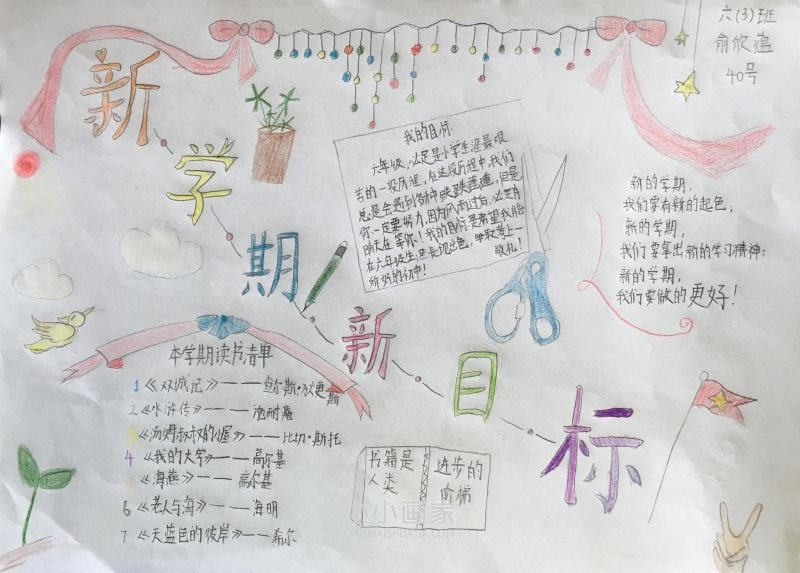 六(3)班
俞欣蕴
40号
新学期新目标
我的目标
六年级，必定是小学生涯最艰
苦的一段历程，在这段历程中，我们
总是会遇到各种跌跌撞撞，但是
你一定要努力，因为风雨过后，必定有
晴天在等你！我的目标是希望我能
在六年级生涯表现出色，争取考上一
所好的初中！
敬礼！
新的学期，
我们要有新的起色；
新的学期，
我们要拿出新的学习精神；
新的学期，
我们要做的更好！
本学期读书清单
1《双城记》——查尔斯·狄更斯
2《水浒传》——施耐庵
3《汤姆叔叔的小屋》——比切·斯托
4《我的大学》——高尔基
5《海燕》——高尔基
6《老人与海》——海明
7《天蓝色的彼岸》——希尔
书籍是
人类
进步的
阶梯
小小画家
XIAOXIAOHUAJIA.COM